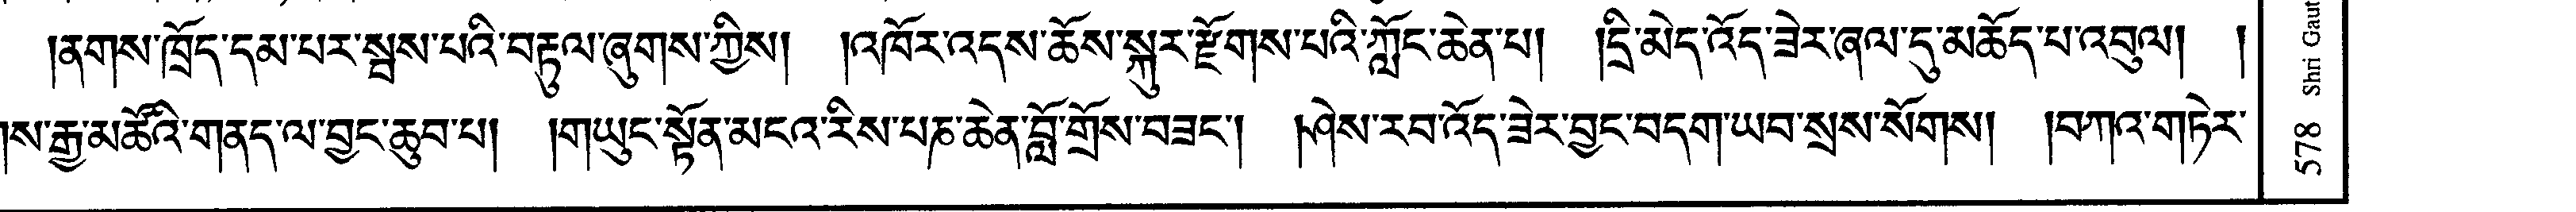 །ནགས་ཁྲོད་དམ་པར་སྦས་པའི་བརྟུལ་ཞུགས་ཀྱིས། །འཁོར་འདས་ཆོས་སྐུར་རྫོགས་པའི་ཀློང་ཆེན་པ། །དྲི་མེད་འོད་ཟེར་ཞལ་དུ་མཆོད་པ་འབུལ། །
།ས་རྒྱ་མཚོའི་གནད་ལ་བྱང་ཆུབ་པ། །གཡུང་སྟོན་མངའ་རིས་པཎ་ཆེན་བློ་གྲོས་བཟང་། །ཤེས་རབ་འོད་ཟེར་བྱང་བདག་ཡབ་སྲས་སོགས། །བཀའ་གཏེར་
578 Shri Gaut